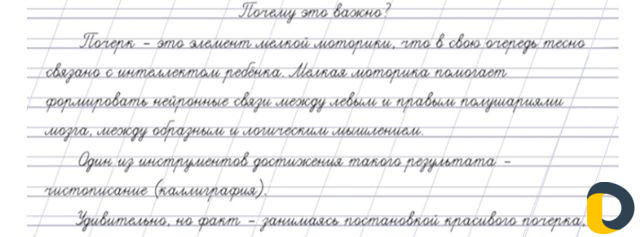 Почему это важно?
Почерк – это элемент мелкой моторики, что в свою очередь тесно
связано с интеллектом ребёнка. Мелкая моторика помогает
формировать нейронные связи между левым и правым полушариями
мозга, между образным и логическим мышлением.
Один из инструментов достижения такого результата –
чистописание (каллиграфия).
Удивительно, но факт – занимаясь постановкой красивого почерка,